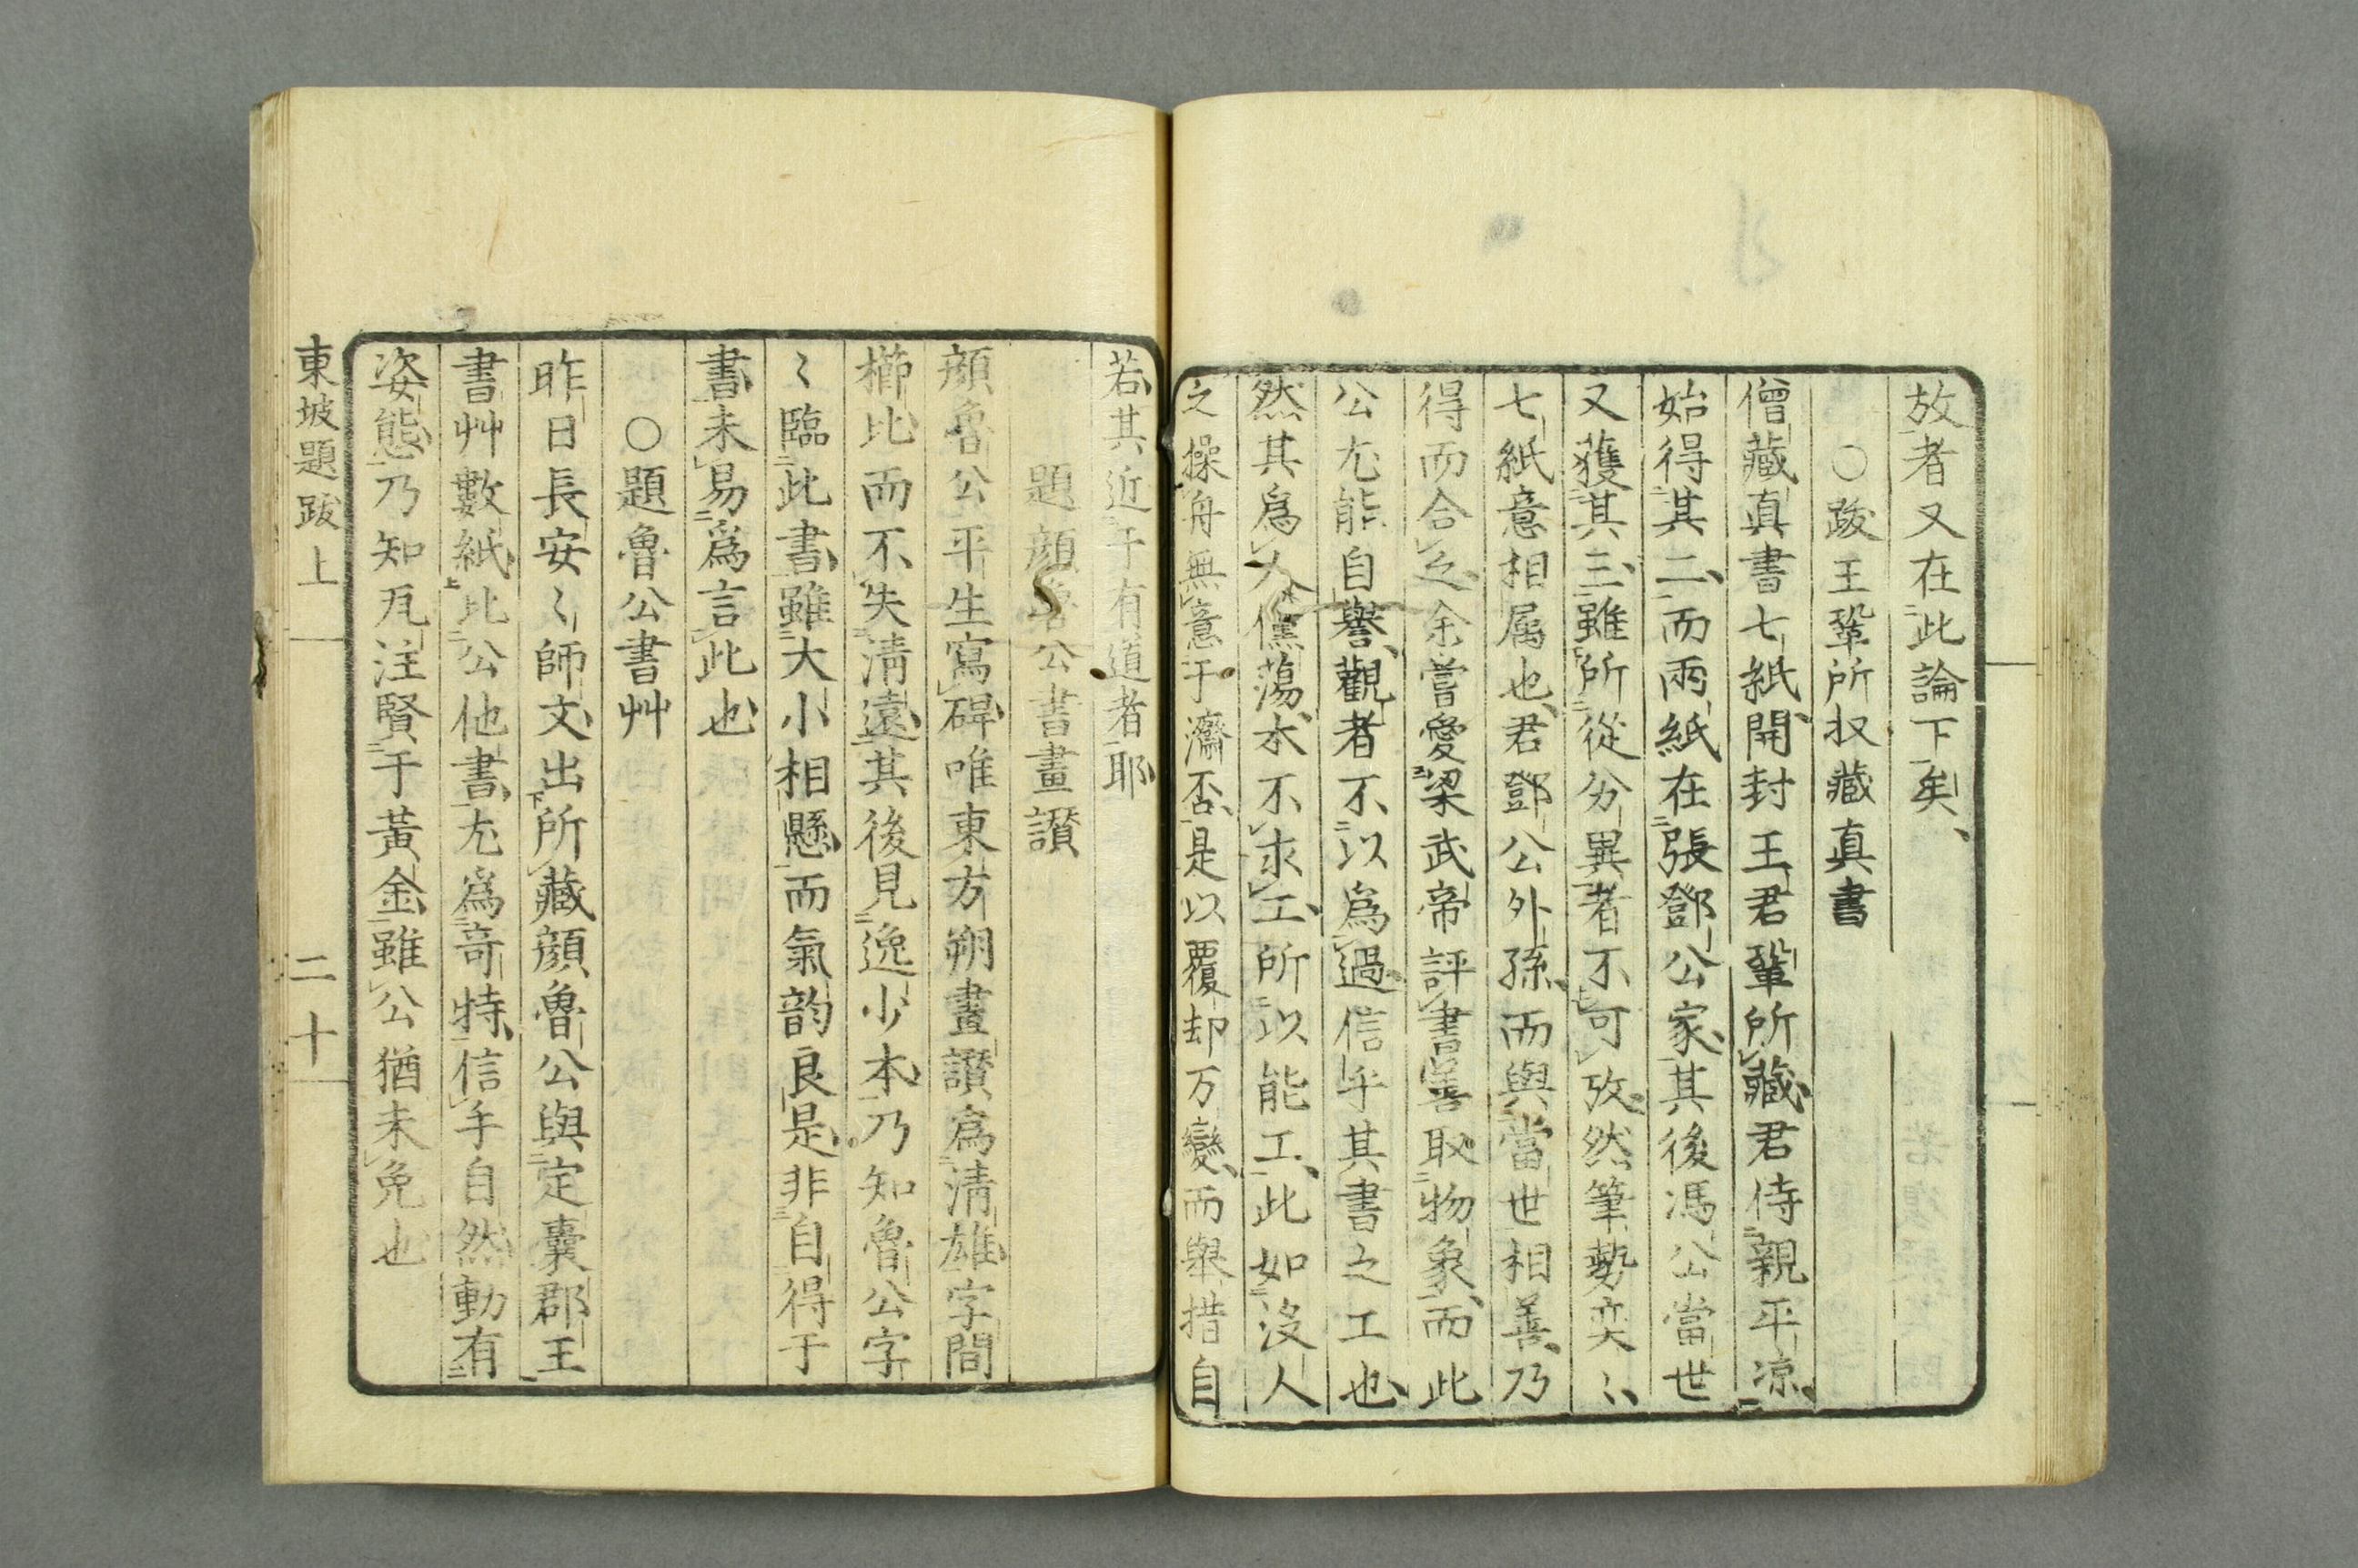 故者又在此論下矣
○跋王鞏所収藏真書
僧藏真書七紙開封王君鞏所藏君侍親平凉
始得其二而兩紙在張鄧公家其後馮公當世
又獲其三雖所從分異者不可攷然筆勢奕〻
七紙意相属也君鄧公外孫而與當世相善乃
得而合之余嘗愛梁武帝評書善取物象而此
公尤能自譽觀者不以爲過信乎其書之工也
然其爲人儻蕩本不求工所以能工此如沒人
之操舟無意于濟否是以覆却万變而舉措自
若其近于有道者耶
題顔魯公書畫讚
顔魯公平生寫碑唯東方朔畫讚爲清雄字間
櫛比而不失清遠其後見逸少本乃知魯公字
〻臨此書雖大小相懸而氣韵良是非自得于
書未易爲言此也
○題魯公書艸
昨日長安〻師文出所藏顔魯公與定襄郡王
書艸數紙比公他書尤爲奇特信手自然動有
姿態乃知瓦注賢于黃金雖公猶未免也
東坡題跋上 二十